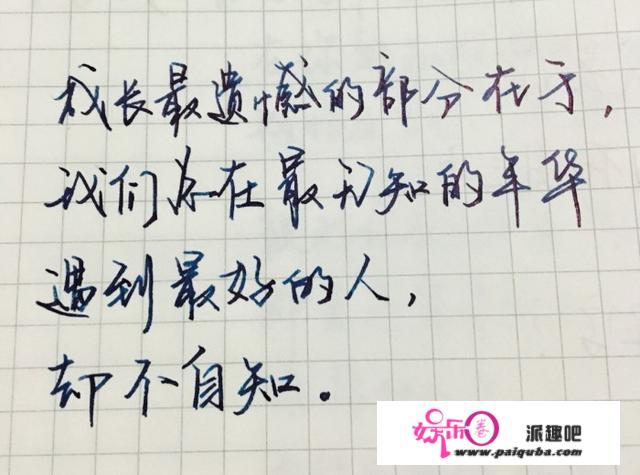 成长最遗憾的部分在于，
我们总在最无知的年华
遇到最好的人，
却不自知。
娱乐圈 派趣吧
www.paiquba.com